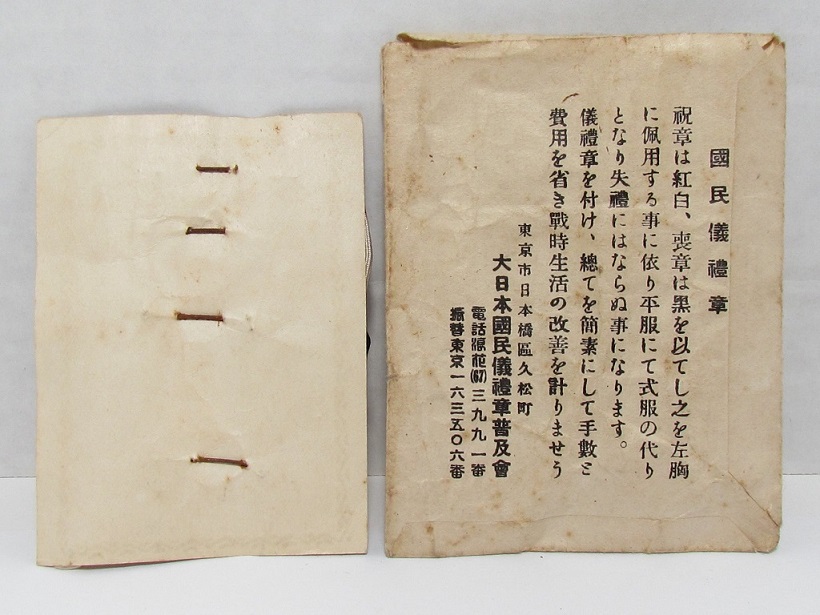 國民儀禮章
祝章は紅白、喪章は黒を以てし之を左胸
に佩用する事に依り平服にて式服の代り
となり失禮にはならぬ事になります。
儀禮章を付け、總てを簡素にして手數と
費用を省き戰時生活の改善を計りませう
東京市日本橋區久松町
大日本國民儀禮章普及會
電話浪花(67)三九九一番
振替東京一六三五〇六番